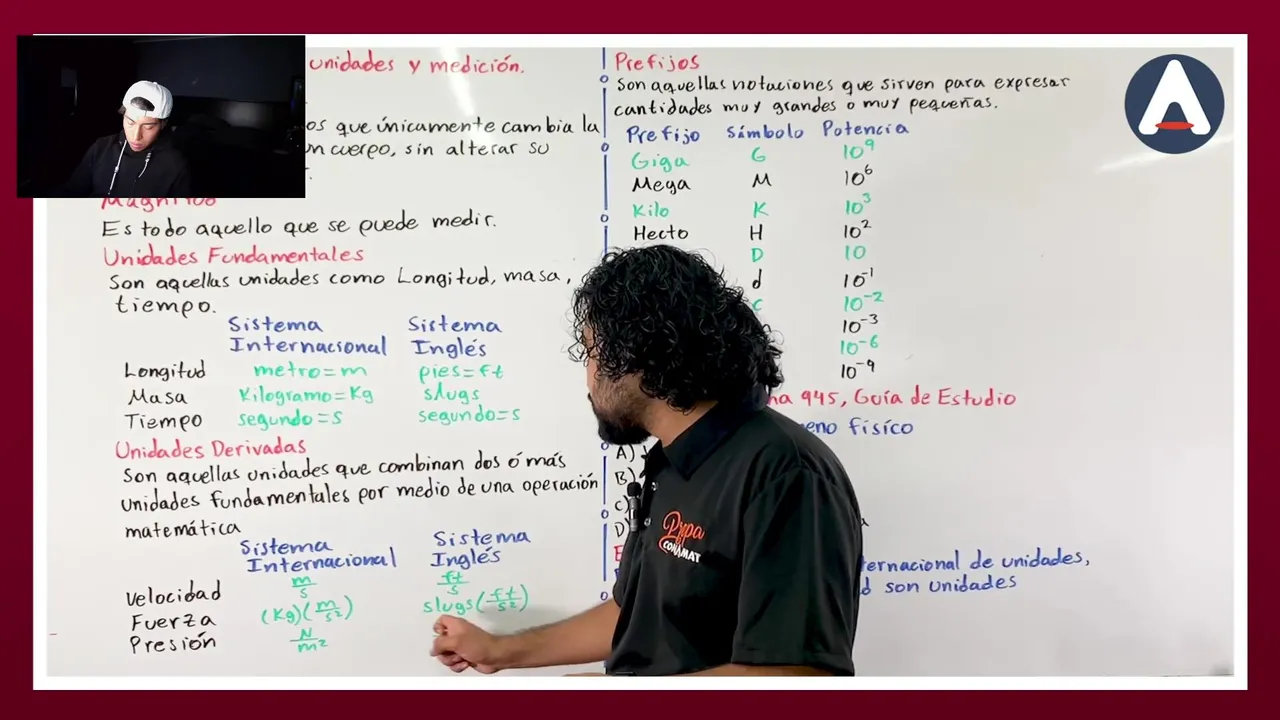 unidades y medición.
os que únicamente cambia la
un cuerpo, sin alterar su
Magnitud
Es todo aquello que se puede medir.
Unidades Fundamentales
Son aquellas unidades como Longitud, masa,
tiempo.
Sistema Sistema
Internacional Inglés
Longitud metro=m pies=ft
Masa Kilogramo=Kg slugs
Tiempo segundo=s segundo=s
Unidades Derivadas
Son aquellas unidades que combinan dos ó más
unidades fundamentales por medio de una operación
matemática
Sistema Sistema
Internacional Inglés
Velocidad m/s ft/s
Fuerza (Kg)(m/s²) slugs(ft/s²)
Presión N/m²
Prefijos
Son aquellas notaciones que sirven para expresar
cantidades muy grandes o muy pequeñas.
Prefijo Símbolo Potencia
Giga G 10⁹
Mega M 10⁶
Kilo K 10³
Hecto H 10²
D 10
d 10⁻¹
c 10⁻²
10⁻³
10⁻⁶
10⁻⁹
na 945, Guía de Estudio
eno físico
A)
B)
C)
D)
E
ternacional de unidades,
d son unidades
Prepa
CONAMAT
A